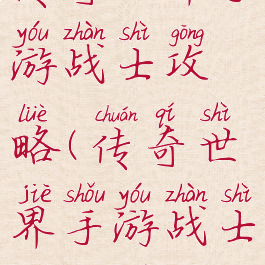 yóu zhàn shì gōng
游战士攻
lüè chuán qí shì
略(传奇世
jiè shǒu yóu zhàn shì
界手游战士